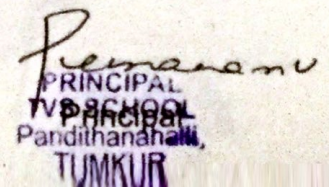 PRINCIPAL
TVS SCHOOL
Principal
Pandithanahalli,
TUMKUR